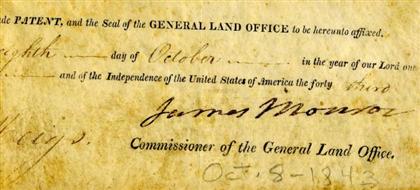 de PATENT, and the Seal of the GENERAL LAND OFFICE to be hereunto affixed.
eighth day of October in the year of our Lord one
and of the Independence of the United States of America the forty third
James Monroe
Meigs.
Commissioner of the General Land Office.
Oct. 8-1843